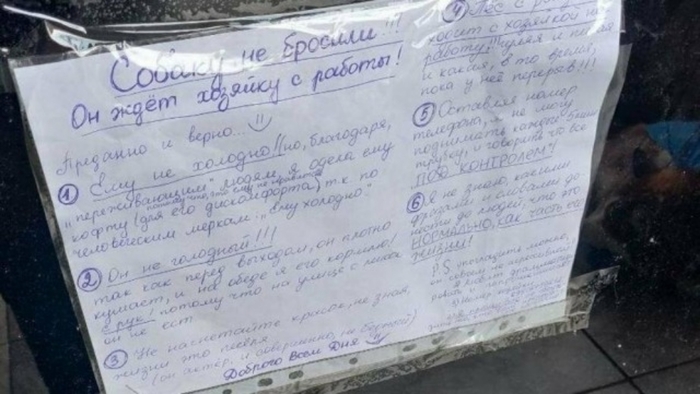 Собаку не бросили!!!
Он ждёт хозяйку с работы!
Преданно и верно...
① Ему не холодно!! но, благодаря,
"переживающим" людям, я одела ему
кофту (для его дискомфорта) т.к. по
человеческим меркам: "Ему холодно"
② Он не голодный!!!
так как перед выходом, он плотно
кушает, и на обеде я его кормлю!
с рук! потому что на улице с пола
он не ест
③ Не насчитайте крысок, не зная,
жизни это песеля
(он актёр, и совершенно, не бедный)
Доброго Всем Дня
④ Пёс с
ходит с хозяйкой на
работу!!! гуляя и
и какая, в то время,
пока у неё перерыв!!!
⑤ Оставляя номер
телефона, я не могу
поднимать каждые
трубку, и говорить что всё
ПОД КОНТРОЛЕМ!
⑥ Я не знаю, какими
фразами и словами до
нести до людей, что это
НОРМАЛЬНО, как часть его
жизни!
P.S погладить можно,
он совсем не